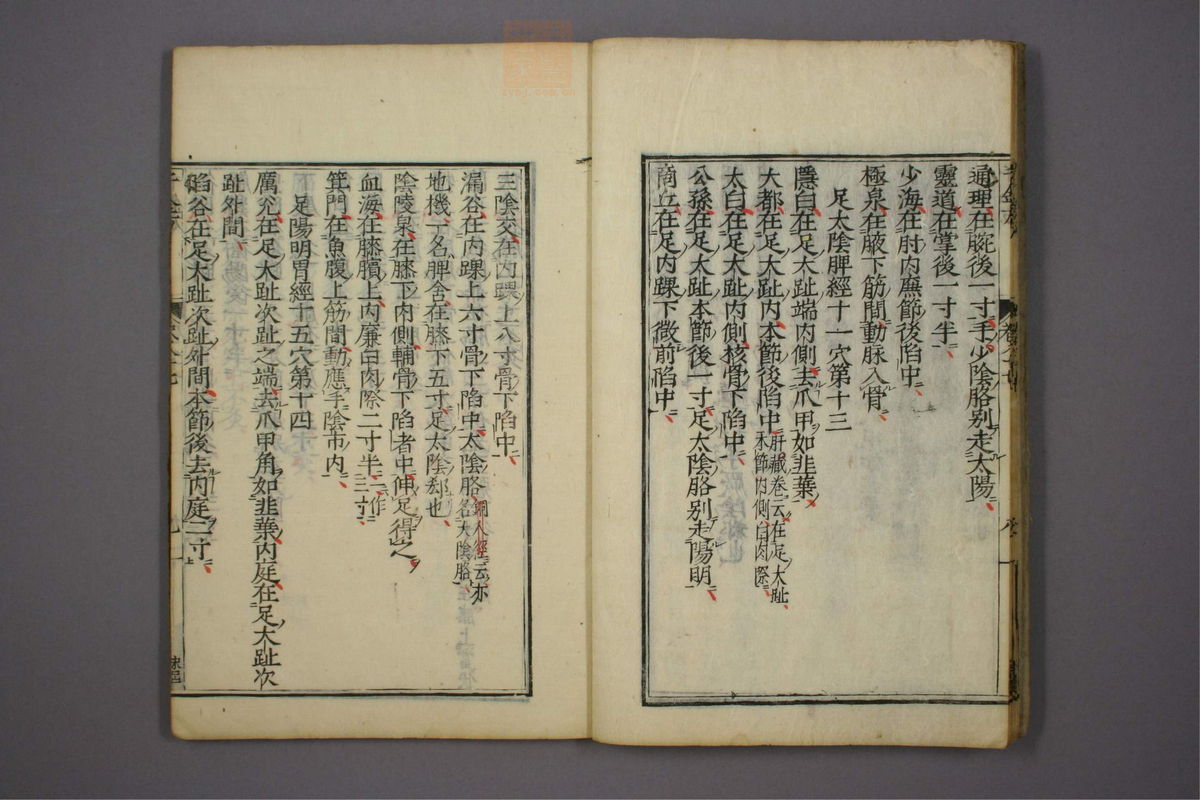 通理在腕後一寸手少陰胳别走太陽
靈道在掌後一寸半
少海在肘内廉節後陷中
極泉在腋下筋間動脉入骨
足太陰脾經十一穴第十三
隱白在足大趾端内側去爪甲如韭葉
大都在足大趾内本節後陷中肝藏卷云在足大趾本節内側白肉際
太白在足大趾内側核骨下陷中
公孫在足太趾本節後一寸足太陰胳别走陽明
商丘在足内踝下微前陷中
三陰交在内踝上八寸骨下陷中
漏谷在内踝上六寸骨下陷中太陰胳銅人經云亦名太陰胳
地機一名脾舎在膝下五寸足太陰郄也
陰陵泉在膝下内側輔骨下陷者中伸足得之
血海在膝臏上内廉白肉際二寸半一作三寸
箕門在魚腹上筋間動應手陰市内
足陽明胃經十五穴第十四
厲兌在足大趾次趾之端去爪甲角如韭葉内庭在足大趾次
趾外間
陷谷在足大趾次趾外間本節後去内庭二寸